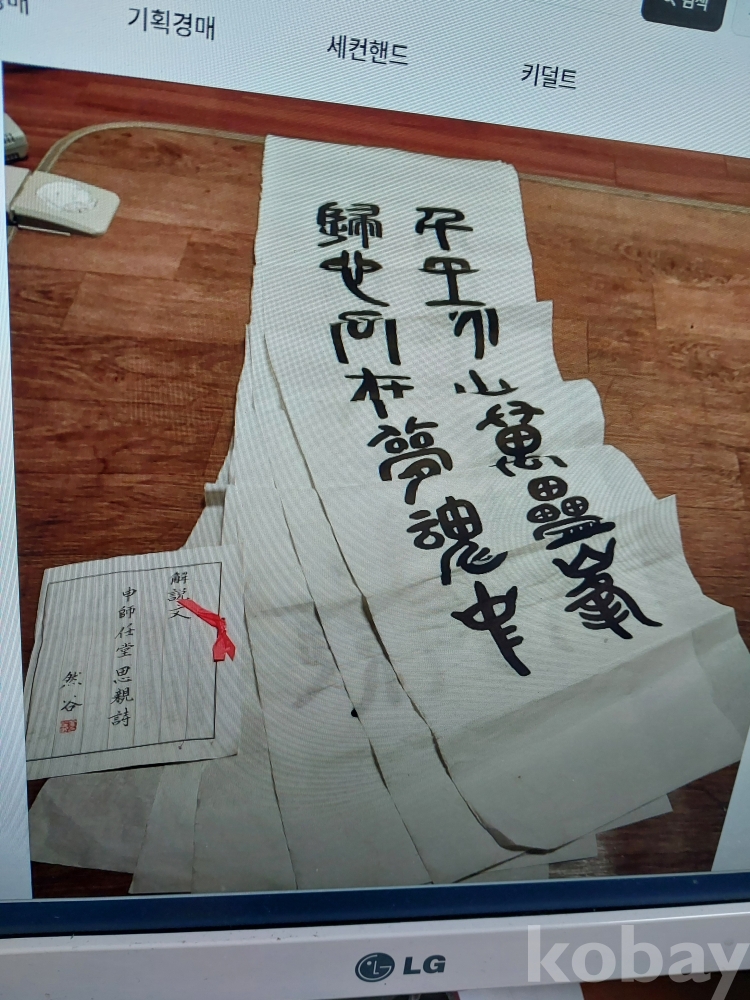 경매
기획경매
세컨핸드
키덜트
검색
千里家山萬疊峯
歸心長在夢魂中
解說文
申師任堂思親詩
然谷
LG
kobay